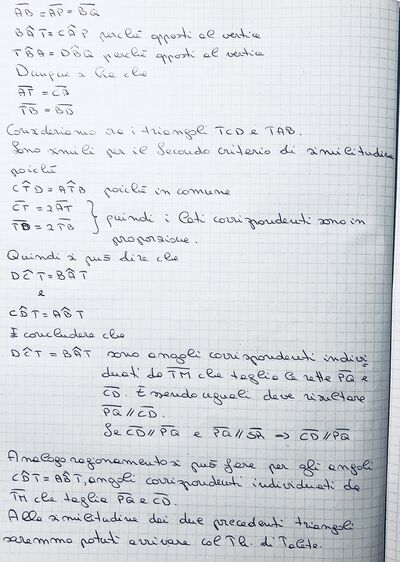 AB = AP = BQ
BQ̂T = CÂP perché opposti al vertice
TB̂A = DB̂Q perché opposti al vertice
Dunque si ha che
AT = CA
TB = BD
Consideriamo ora i triangoli TCD e TAB.
Sono simili per il Secondo criterio di similitudine
poiché
CT̂D = AT̂B poiché in comune
CT = 2AT
TD = 2TB } quindi i lati corrispondenti sono in
proporzione.
Quindi si può dire che
DĈT = BÂT
e
CD̂T = AB̂T
E concludere che
DĈT = BÂT sono angoli corrispondenti indivi
duati da TM che taglia le rette PQ e
CD. Essendo uguali deve risultare
PQ // CD.
Se CD // PQ e PQ // SR ⇒ CD // PQ
Analogo ragionamento si può fare per gli angoli
CD̂T = AB̂T, angoli corrispondenti individuati da
TM che taglia PQ e CD.
Alla similitudine dei due precedenti triangoli
saremmo potuti arrivare col Th. di Talete.